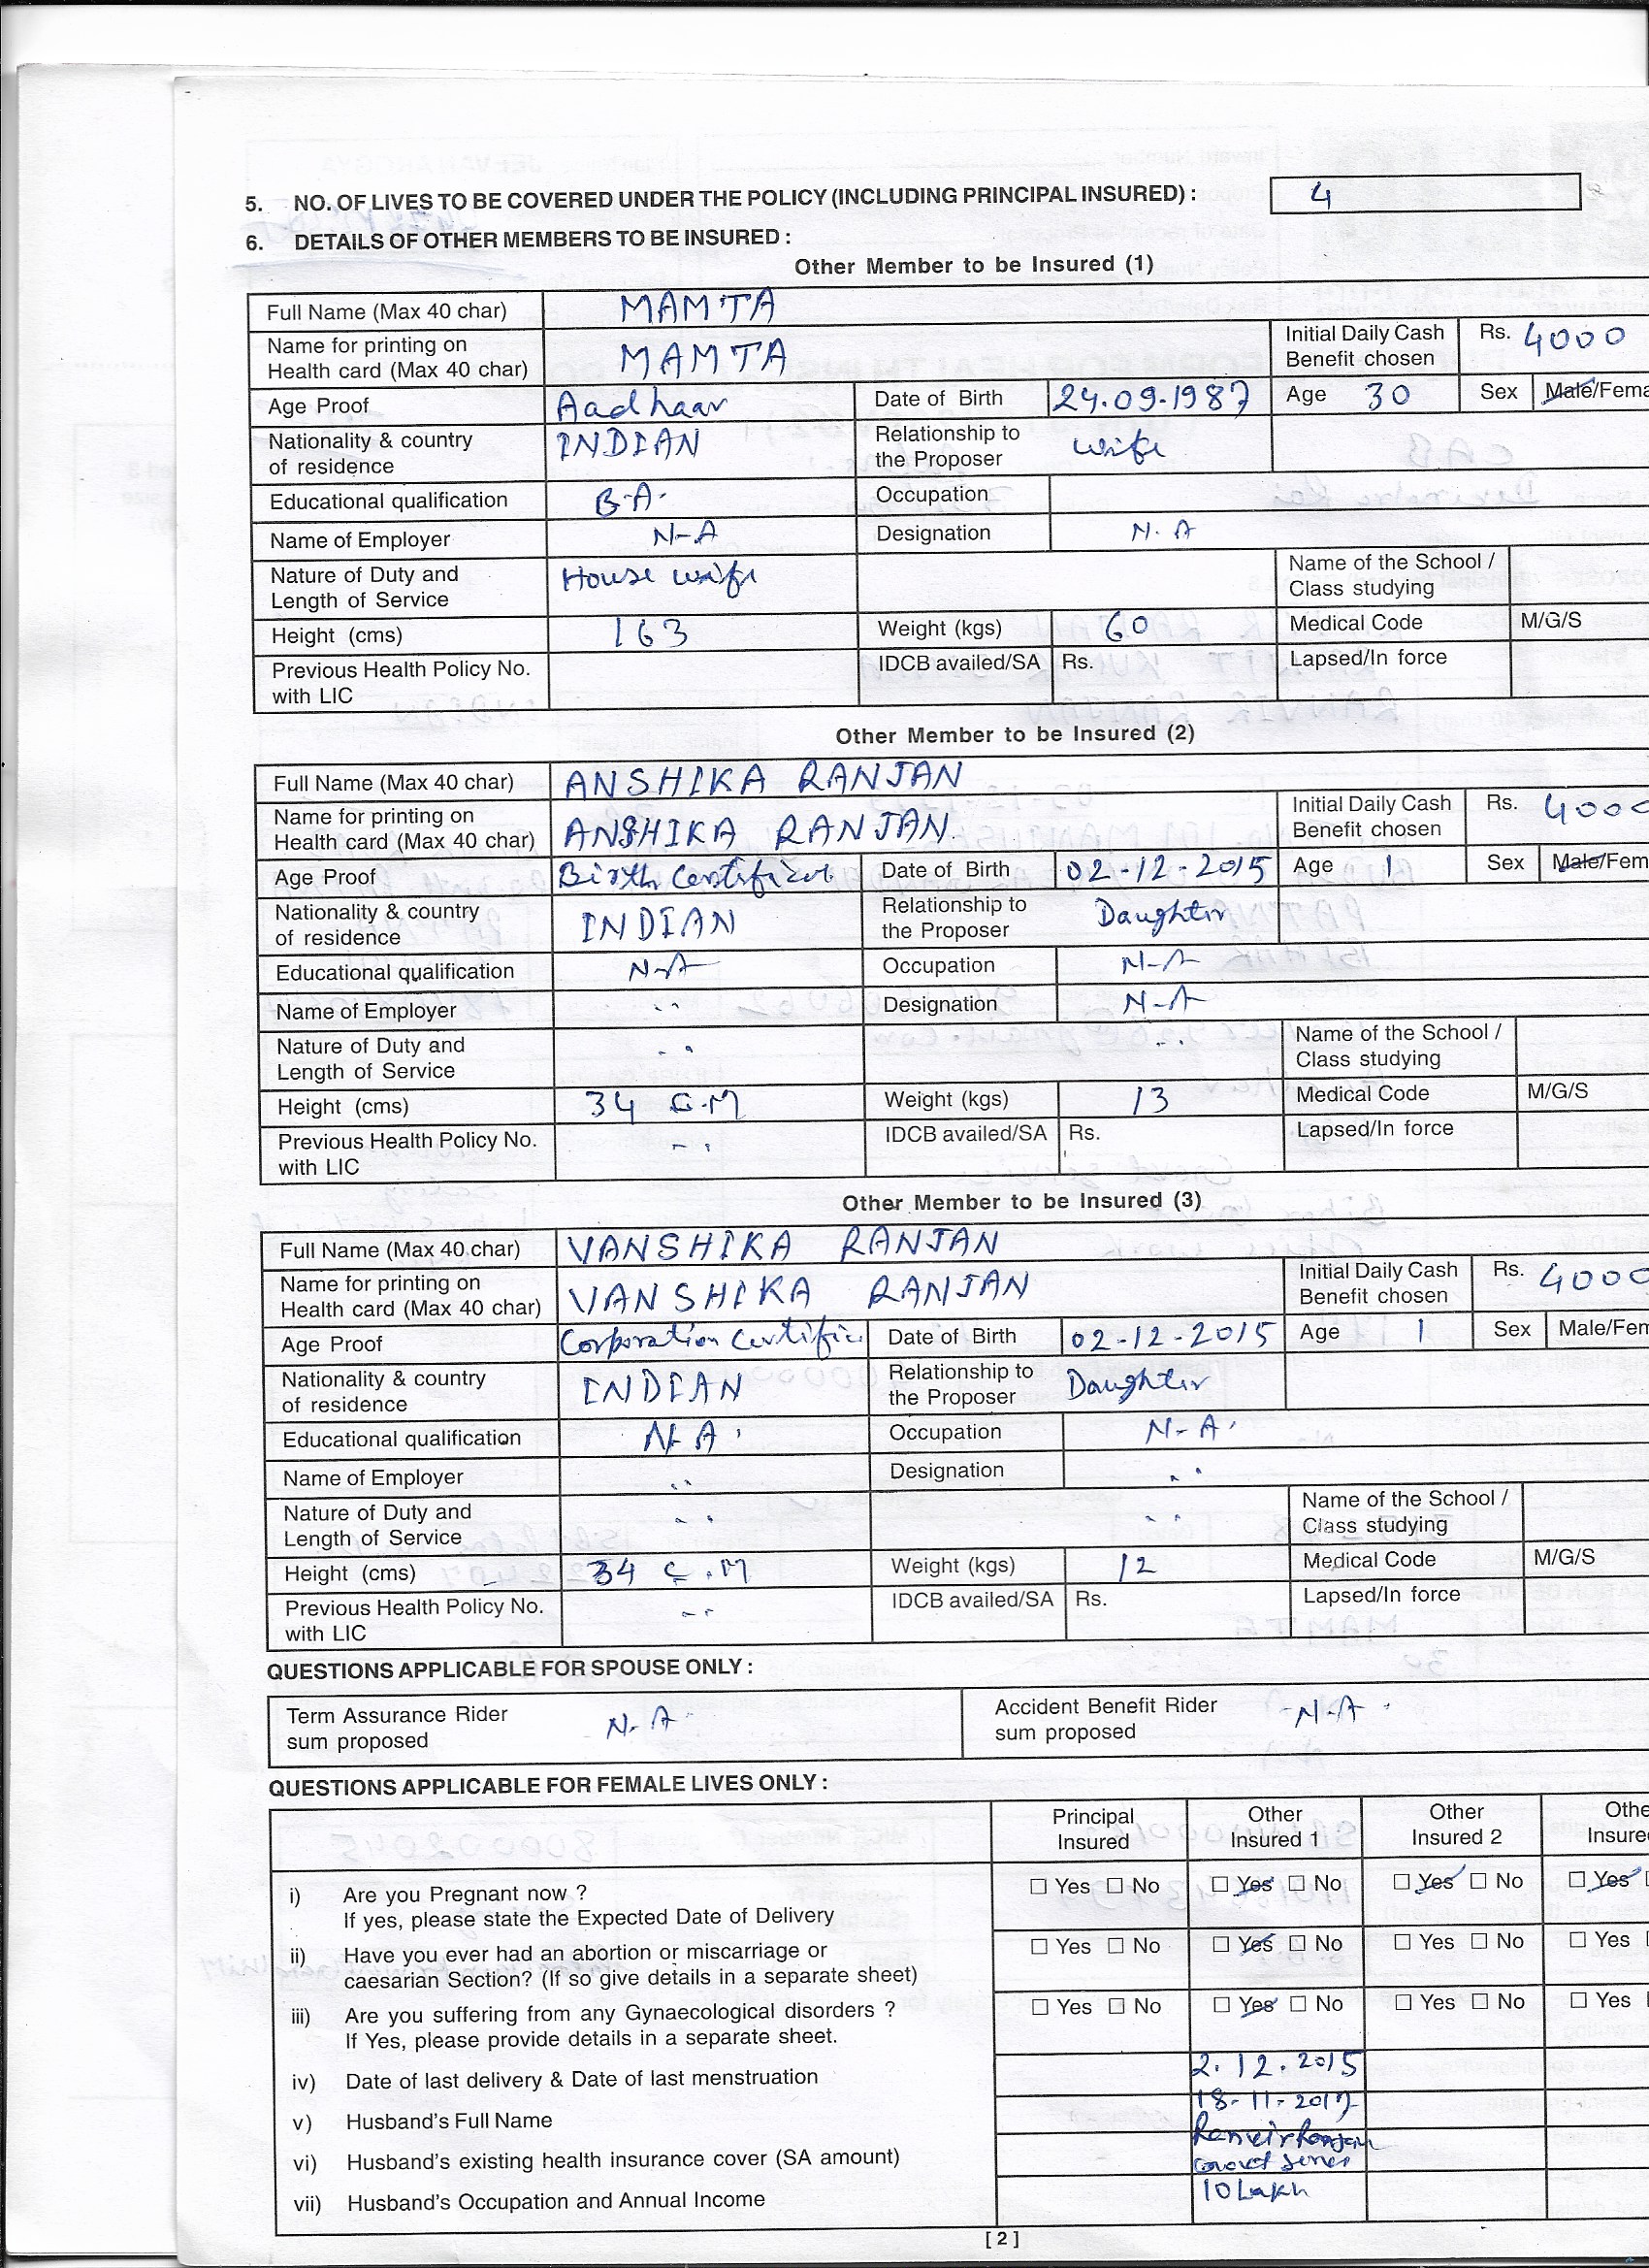 5. NO. OF LIVES TO BE COVERED UNDER THE POLICY (INCLUDING PRINCIPAL INSURED) : 4
6. DETAILS OF OTHER MEMBERS TO BE INSURED :
Other Member to be Insured (1)
Full Name (Max 40 char) MAMTA
Name for printing on Health card (Max 40 char) MAMTA Initial Daily Cash Benefit chosen Rs. 4000
Age Proof Aadhaar Date of Birth 24.09.1987 Age 30 Sex Male/Fema
Nationality & country of residence INDIAN Relationship to the Proposer wife
Educational qualification B.A. Occupation
Name of Employer N-A Designation N.A
Nature of Duty and Length of Service House wife Name of the School / Class studying
Height (cms) 163 Weight (kgs) 60 Medical Code M/G/S
Previous Health Policy No. with LIC IDCB availed/SA Rs. Lapsed/In force
Other Member to be Insured (2)
Full Name (Max 40 char) ANSHIKA RANJAN
Name for printing on Health card (Max 40 char) ANSHIKA RANJAN. Initial Daily Cash Benefit chosen Rs. 4000
Age Proof Birth Certificat Date of Birth 02-12-2015 Age 1 Sex Male/Fem
Nationality & country of residence INDIAN Relationship to the Proposer Daughter
Educational qualification N-A Occupation N-A
Name of Employer " Designation N-A
Nature of Duty and Length of Service " " Name of the School / Class studying
Height (cms) 34 C.M Weight (kgs) 13 Medical Code M/G/S
Previous Health Policy No. with LIC " IDCB availed/SA Rs. Lapsed/In force
Other Member to be Insured (3)
Full Name (Max 40 char) VANSHIKA RANJAN
Name for printing on Health card (Max 40 char) VANSHIKA RANJAN Initial Daily Cash Benefit chosen Rs. 4000
Age Proof Corporation Certific Date of Birth 02-12-2015 Age 1 Sex Male/Fem
Nationality & country of residence INDIAN Relationship to the Proposer Daughter
Educational qualification N.A. Occupation N-A.
Name of Employer " Designation "
Nature of Duty and Length of Service " " Name of the School / Class studying
Height (cms) 34 C.M Weight (kgs) 12 Medical Code M/G/S
Previous Health Policy No. with LIC " IDCB availed/SA Rs. Lapsed/In force
QUESTIONS APPLICABLE FOR SPOUSE ONLY :
Term Assurance Rider sum proposed N.A Accident Benefit Rider sum proposed N.A.
QUESTIONS APPLICABLE FOR FEMALE LIVES ONLY :
Principal Insured Other Insured 1 Other Insured 2 Othe Insure
i) Are you Pregnant now ? ☐ Yes ☐ No ☐ Yes ☐ No ☐ Yes ☐ No ☐ Yes
If yes, please state the Expected Date of Delivery
ii) Have you ever had an abortion or miscarriage or ☐ Yes ☐ No ☐ Yes ☐ No ☐ Yes ☐ No ☐ Yes
caesarian Section? (If so give details in a separate sheet)
iii) Are you suffering from any Gynaecological disorders ? ☐ Yes ☐ No ☐ Yes ☐ No ☐ Yes ☐ No ☐ Yes
If Yes, please provide details in a separate sheet.
iv) Date of last delivery & Date of last menstruation 2.12.2015
18-11-2017
v) Husband's Full Name Ranvir Ranjan
vi) Husband's existing health insurance cover (SA amount)
vii) Husband's Occupation and Annual Income 10 Lakh
[ 2 ]